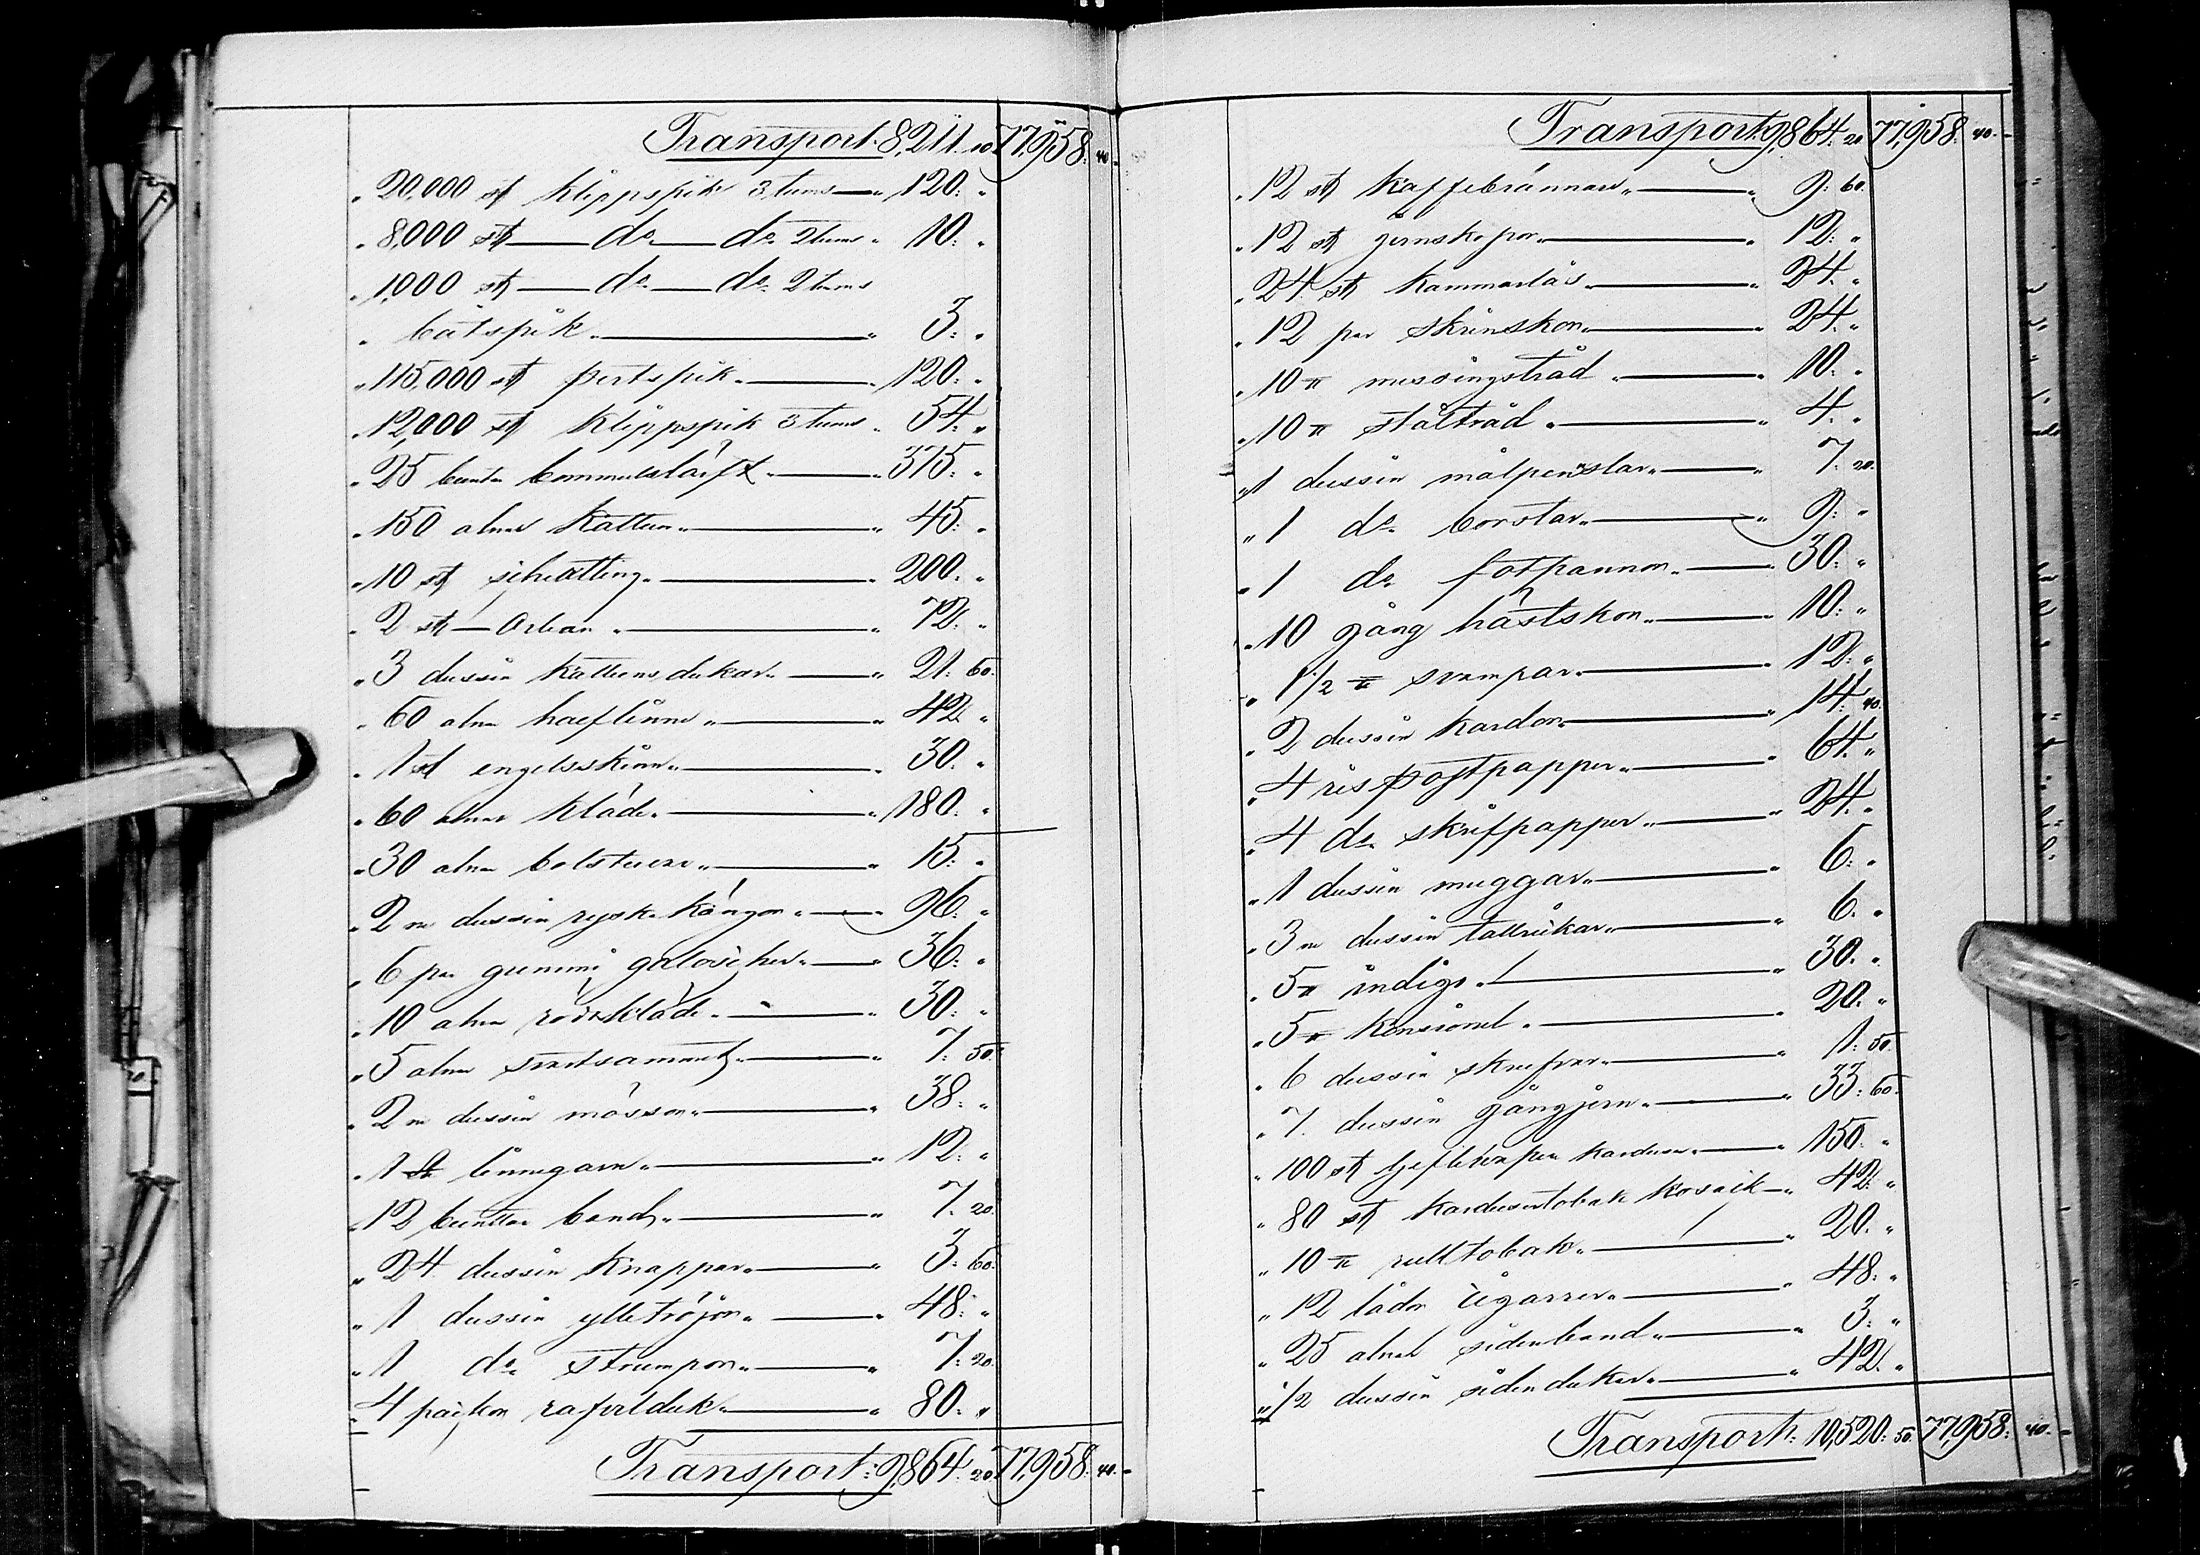 Transport: 8,211. 10 77,958: 40.
" 20,000 st klippspik 3 tums " 120: "
" 8,000 st do do 2 tums " 10: "
" 1,000 st do do 2 tums
" båtspik " 3: "
" 115,000 st pertspik " 120: "
" 12,000 st klippspik 3 tums " 54: "
" 25 bunta bommulslärft " 375: "
" 150 alnar kattun " 45: "
" 10 st schirtting " 200: "
" 2 st Orlean " 72: "
" 3 dussin kattunsdukar " 21: 60.
" 60 alnar haeflinne " 42: "
" 1 st engelsskinn " 30: "
" 60 alnar kläde " 180: "
" 30 alnar bolstuvar " 15: "
" 2 dussin rysk. kängor " 96: "
" 6 par gummi galoscher " 36: "
" 10 alnar rödt kläde " 30: "
" 5 alnar svartsammet " 7: 50.
" 2 dussin mössor " 38: "
" 1 ℔ linnegarn " 12: "
" 12 bunttar band " 7: 20.
" 24 dussin knappar " 3: 60.
" 1 dussin ylletröjor " 48: "
" 1 do strumpor " 7: 20.
" 4 päckor rafvelduk " 80: "
Transport: 9,864. 20 77,958: 40.
Transport 9,864: 20 77,958: 40.
" 12 st kaffebrännare " 9: 60.
" 12 st jernskopor " 12: "
" 24 st kammarlås " 24: "
" 12 par skrinskor " 24: "
" 10 ℔ messingstråd " 10: "
" 10 ℔ ståltråd " 4: "
" 1 dussin målpenslar " 7: 20.
" 1 do borstar " 9: "
" 1 do fotpannor " 30: "
" 10 gång hästskor " 10: "
" 1/2 ℔ svampar " 12: "
" 2 dussin kardor " 14: 40.
" 4 ris postpapper " 64: "
" 4 do skrifpapper " 24: "
" 1 dussin muggar " 6: "
" 3 dussin tallrikar " 6: "
" 5 ℔ indigo " 30: "
" 5 ℔ konsionel " 20: "
" 6 dussin skrufvar " 1: 50.
" 7 dussin gångjern " 33: 60.
" 100 st karduser " 150: "
" 80 st kardustobak kosack " 42: "
" 10 ℔ rulltobak " 20: "
" 12 lådor sigarrer " 48: "
" 25 alnar sidenband " 3: "
" 1/2 dussin sidendukar " 42: "
Transport: 10,520: 50. 77,958: 40.